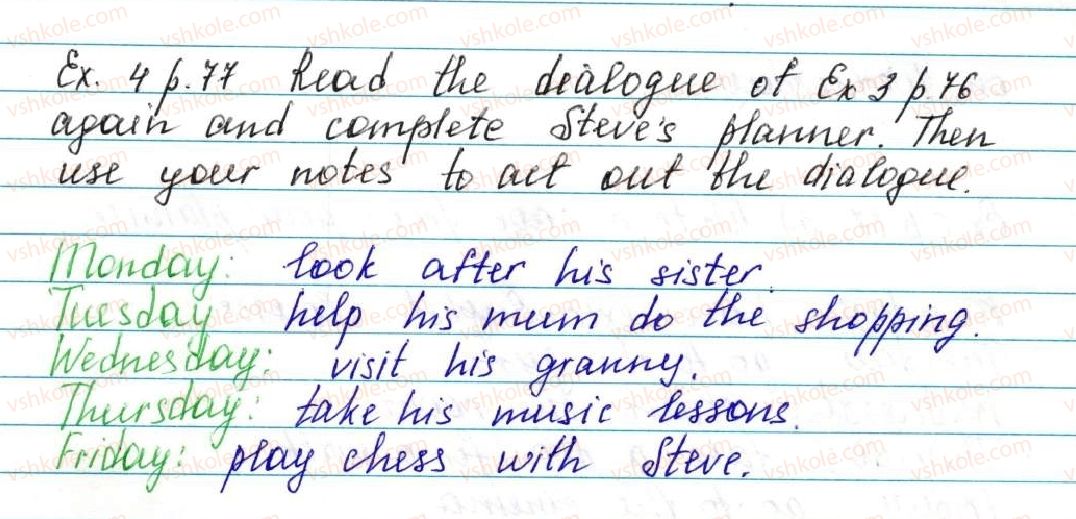 Ex. 4 p. 77 Read the dialogue of Ex 3 p. 76
again and complete Steve's planner. Then
use your notes to act out the dialogue.
Monday: look after his sister.
Tuesday help his mum do the shopping.
Wednesday: visit his granny.
Thursday: take his music lessons.
Friday: play chess with Steve.